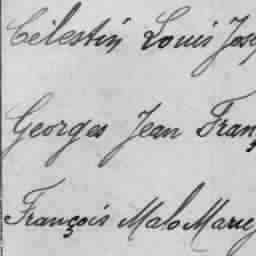 Célestin Louis Jos
Georges Jean Franç
François Malo Marie